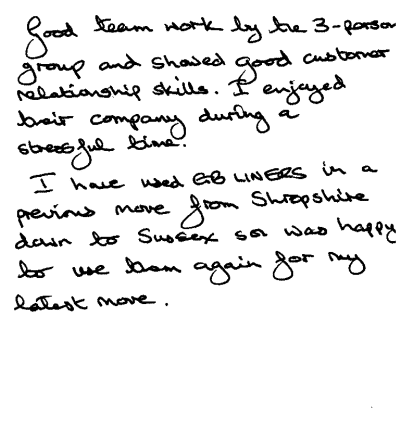 Good team work by the 3-person
group and showed good customer
relationship skills. I enjoyed
their company during a
stressful time.
I have used GB LINERS in a
previous move from Shropshire
down to Sussex so was happy
to use them again for my
latest move.